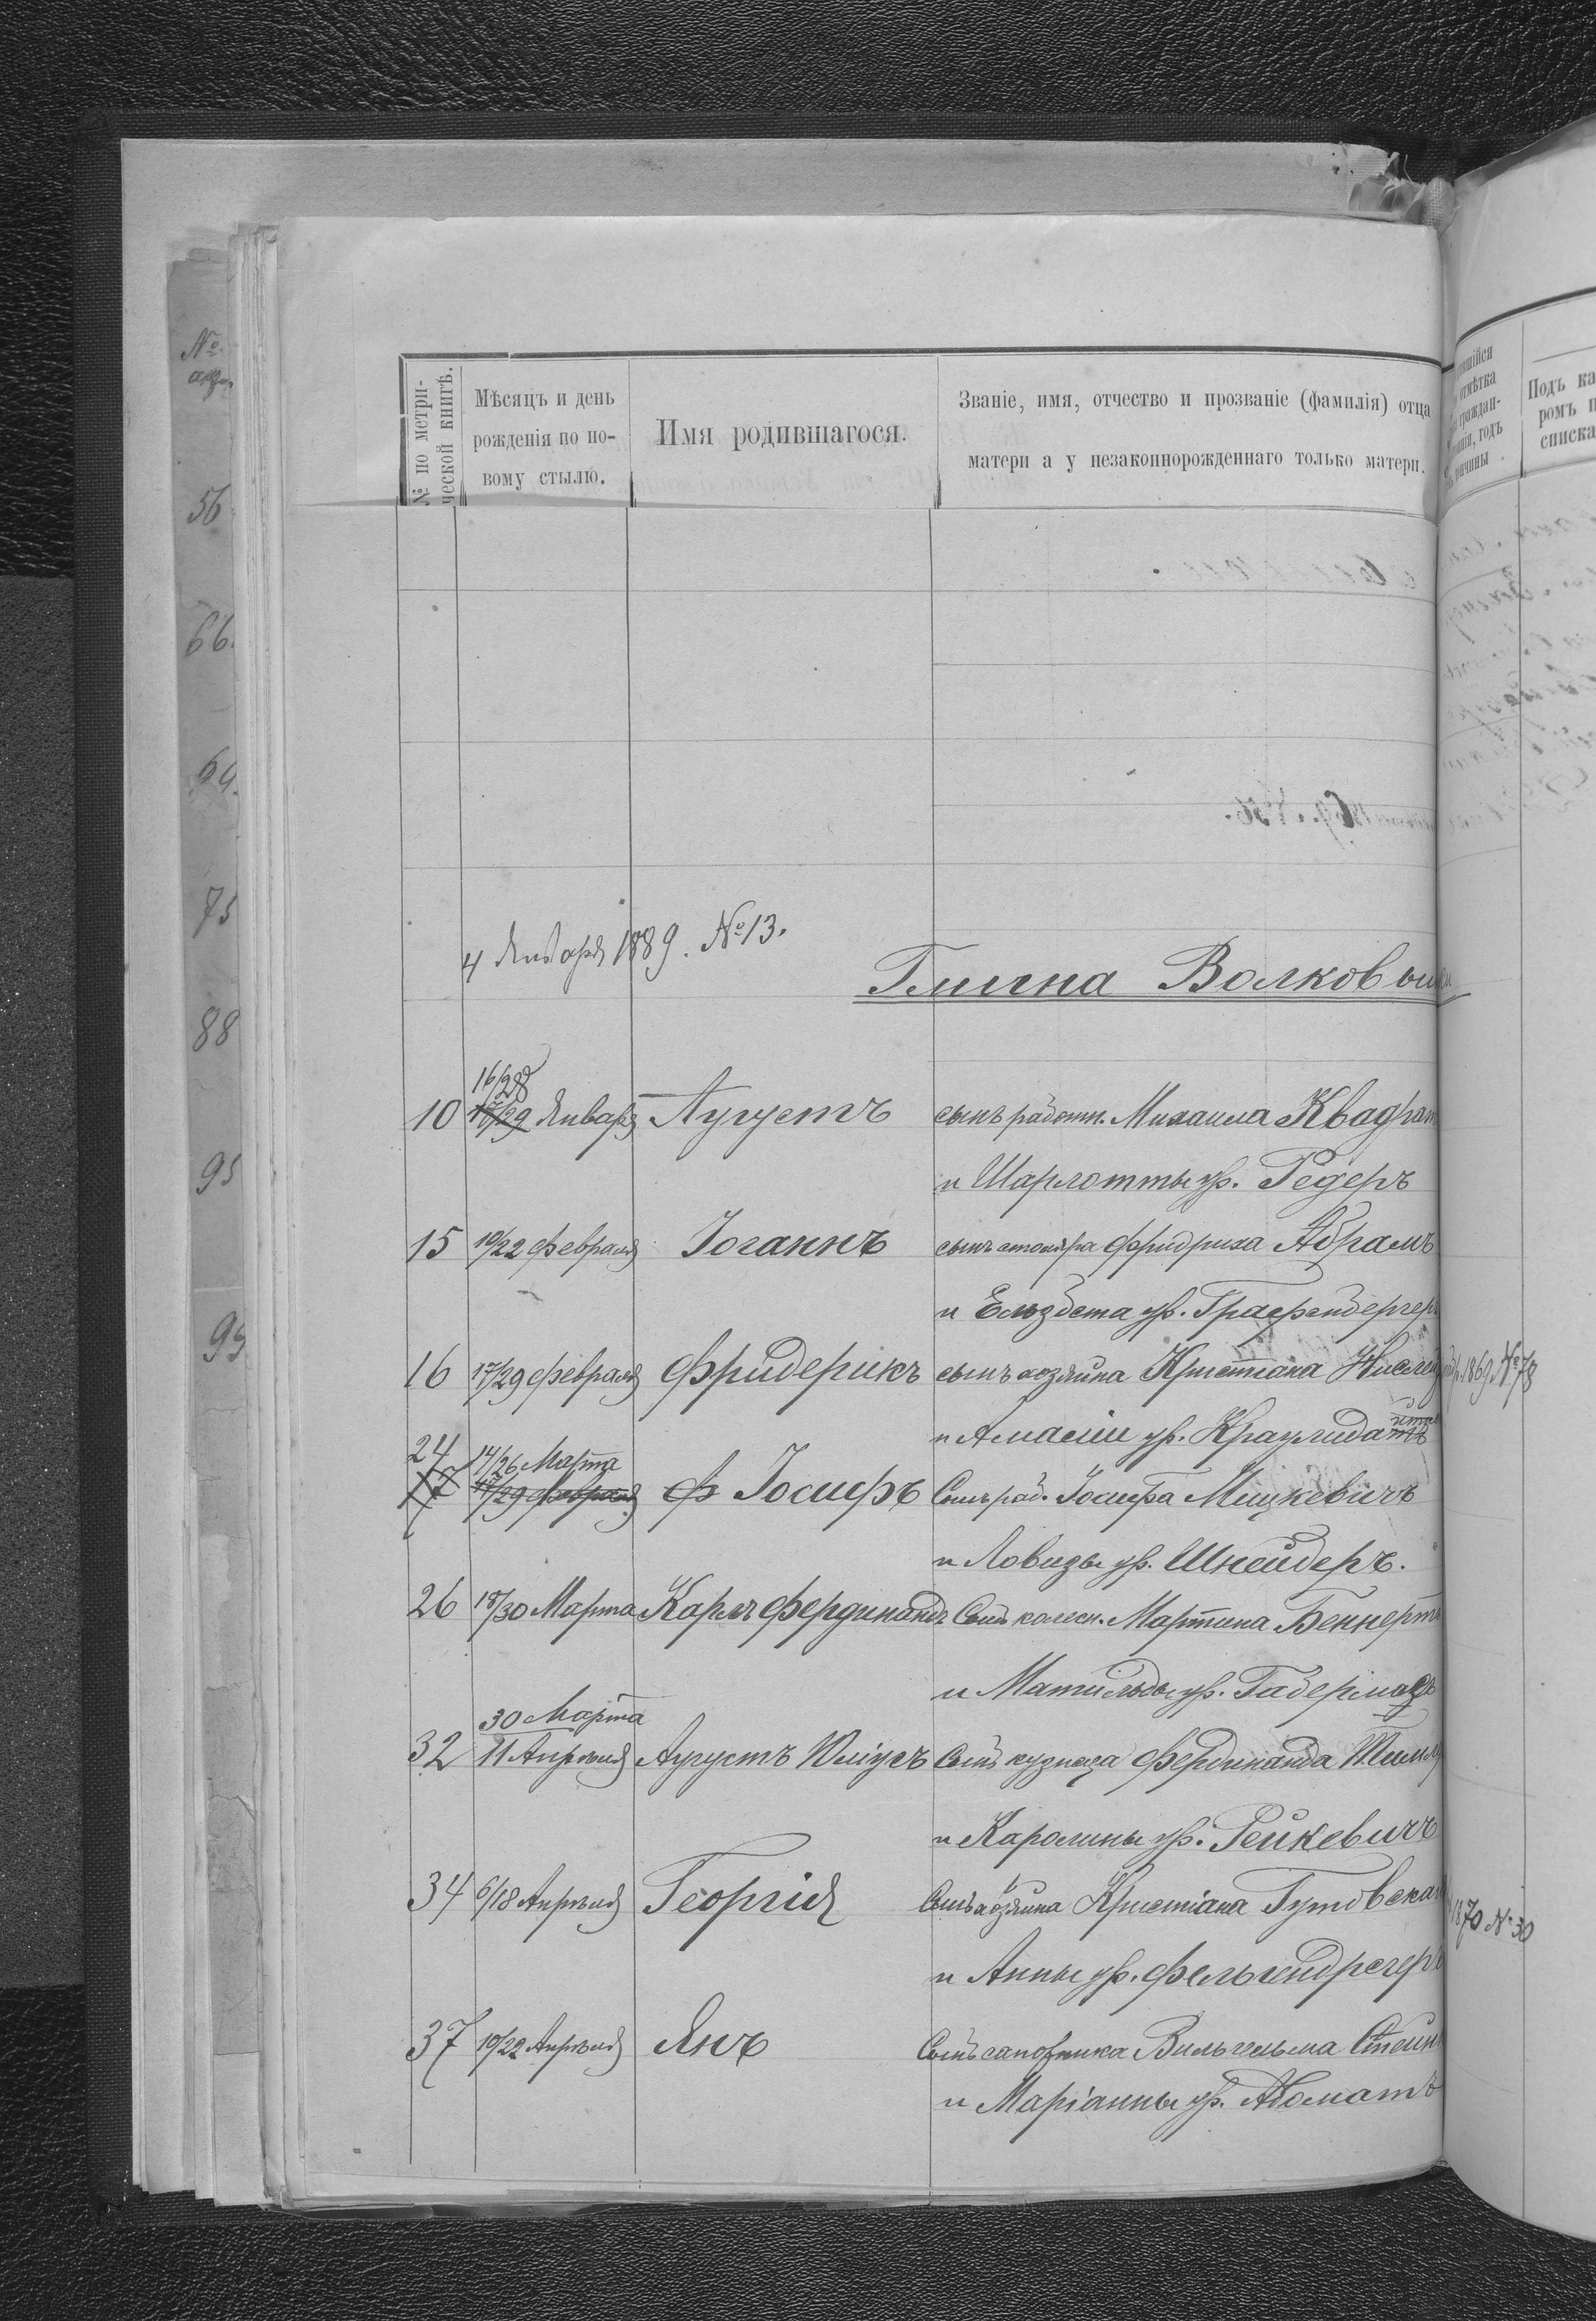 №
акт.
56
66.
69.
75
88
95
99
№ по метри-
ческой книгѣ.
Мѣсяцъ и день
рожденія по но-
вому стылю.
Имя родившагося.
Званіе, имя, отчество и прозваніе (фамилія) отца
матери а у незаконнорожденнаго только матери.
4 Января 1889. № 13.
Гмина Волковышки
16/28
10 17/29 Января Августъ сынъ работн. Михаила Квадрат
и Шарлотты ур. Редеръ
15 10/22 Февраля Іоганнъ сынъ столяра Фридриха Абрамъ
и Елизбета ур.
16 17/29 Февраля Фридерикъ сынъ хозяина Кристіана
и Амаліи ур.
24 14/26 Марта
17 17/29 Февраля Ф Іосифъ Сынъ раб. Іосифа Мицкевичъ
и Ловизы ур. Шнейдеръ.
26 18/30 Марта Карлъ Фердинандъ Сынъ колесн. Мартина Беннертъ
и Матильды ур.
30 Марта
32 11 Апрѣля Августъ Юліусъ Сынъ кузнеца Фердинанда
и Каролины ур. Рейкевичъ
34 6/18 Апрѣля Георгій Сынъ хозяина Кристіана Гутовска
и Анны ур. Фельгендрегеръ
37 10/22 Апрѣля Янъ Сынъ сапожника Вильгельма Штейн
и Маріанны ур. Абоматъ
Подъ ка
ромъ п
списка
1869 № 78
1870 № 30